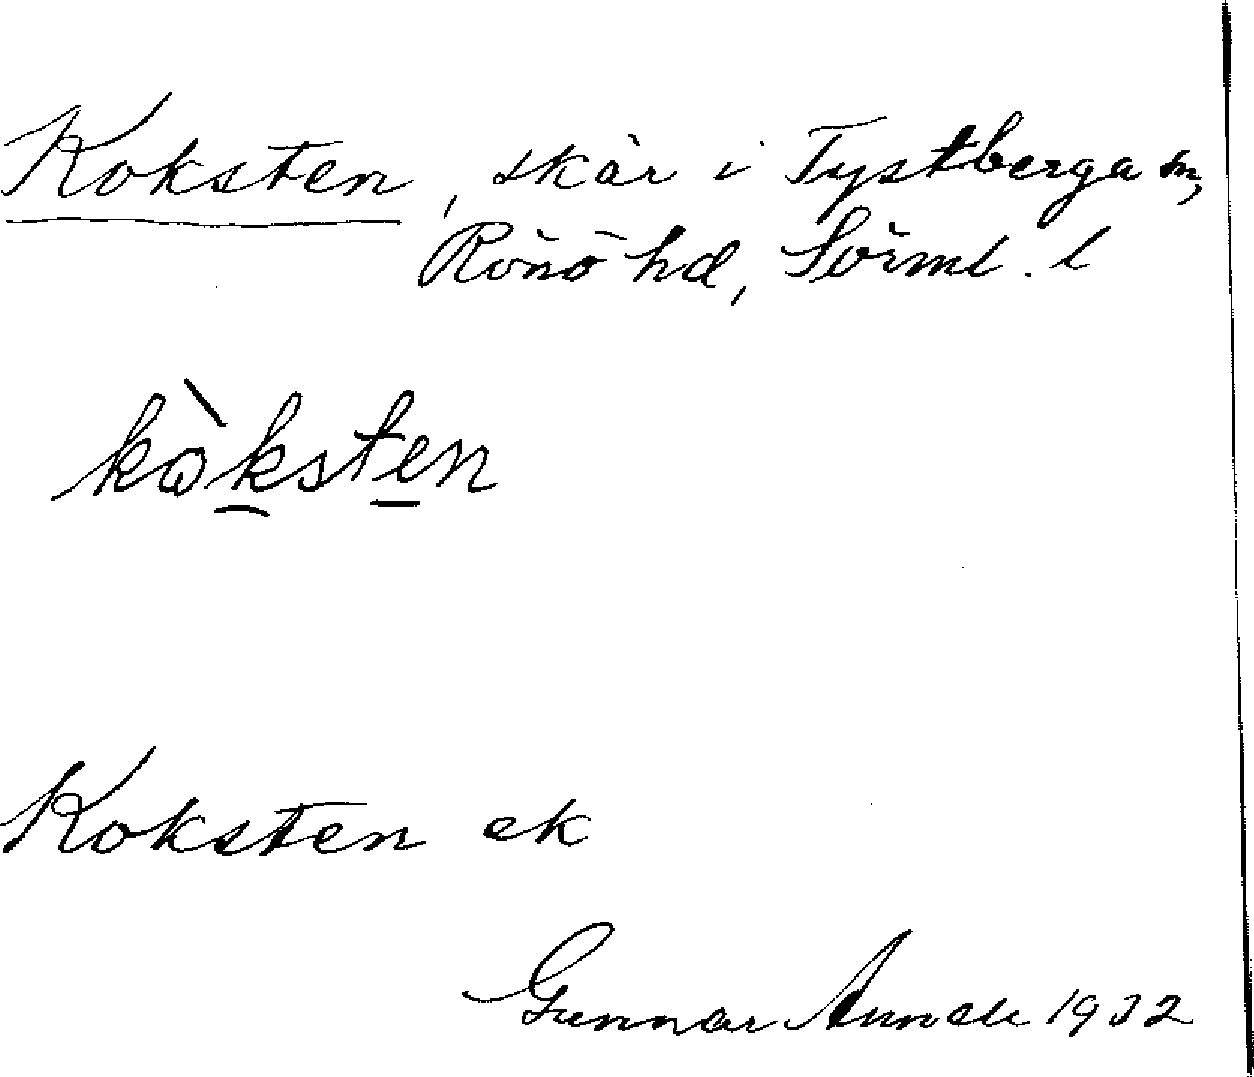 Koksten, skär i Tystberga sn,
Rönö hd, Sörml. l
kòksten
Koksten ek
Gunnar 1932